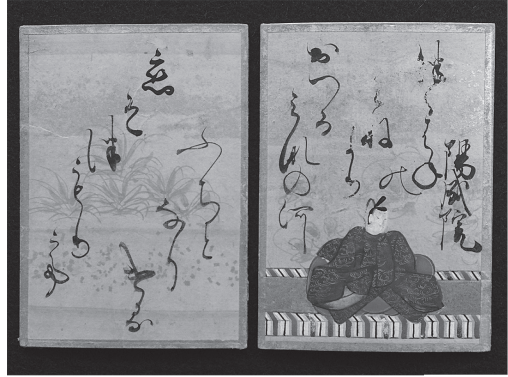 陽成院
つくはね
の
みね
より
おつる
みなの河
恋
そ
つもりて
ふちと
なり